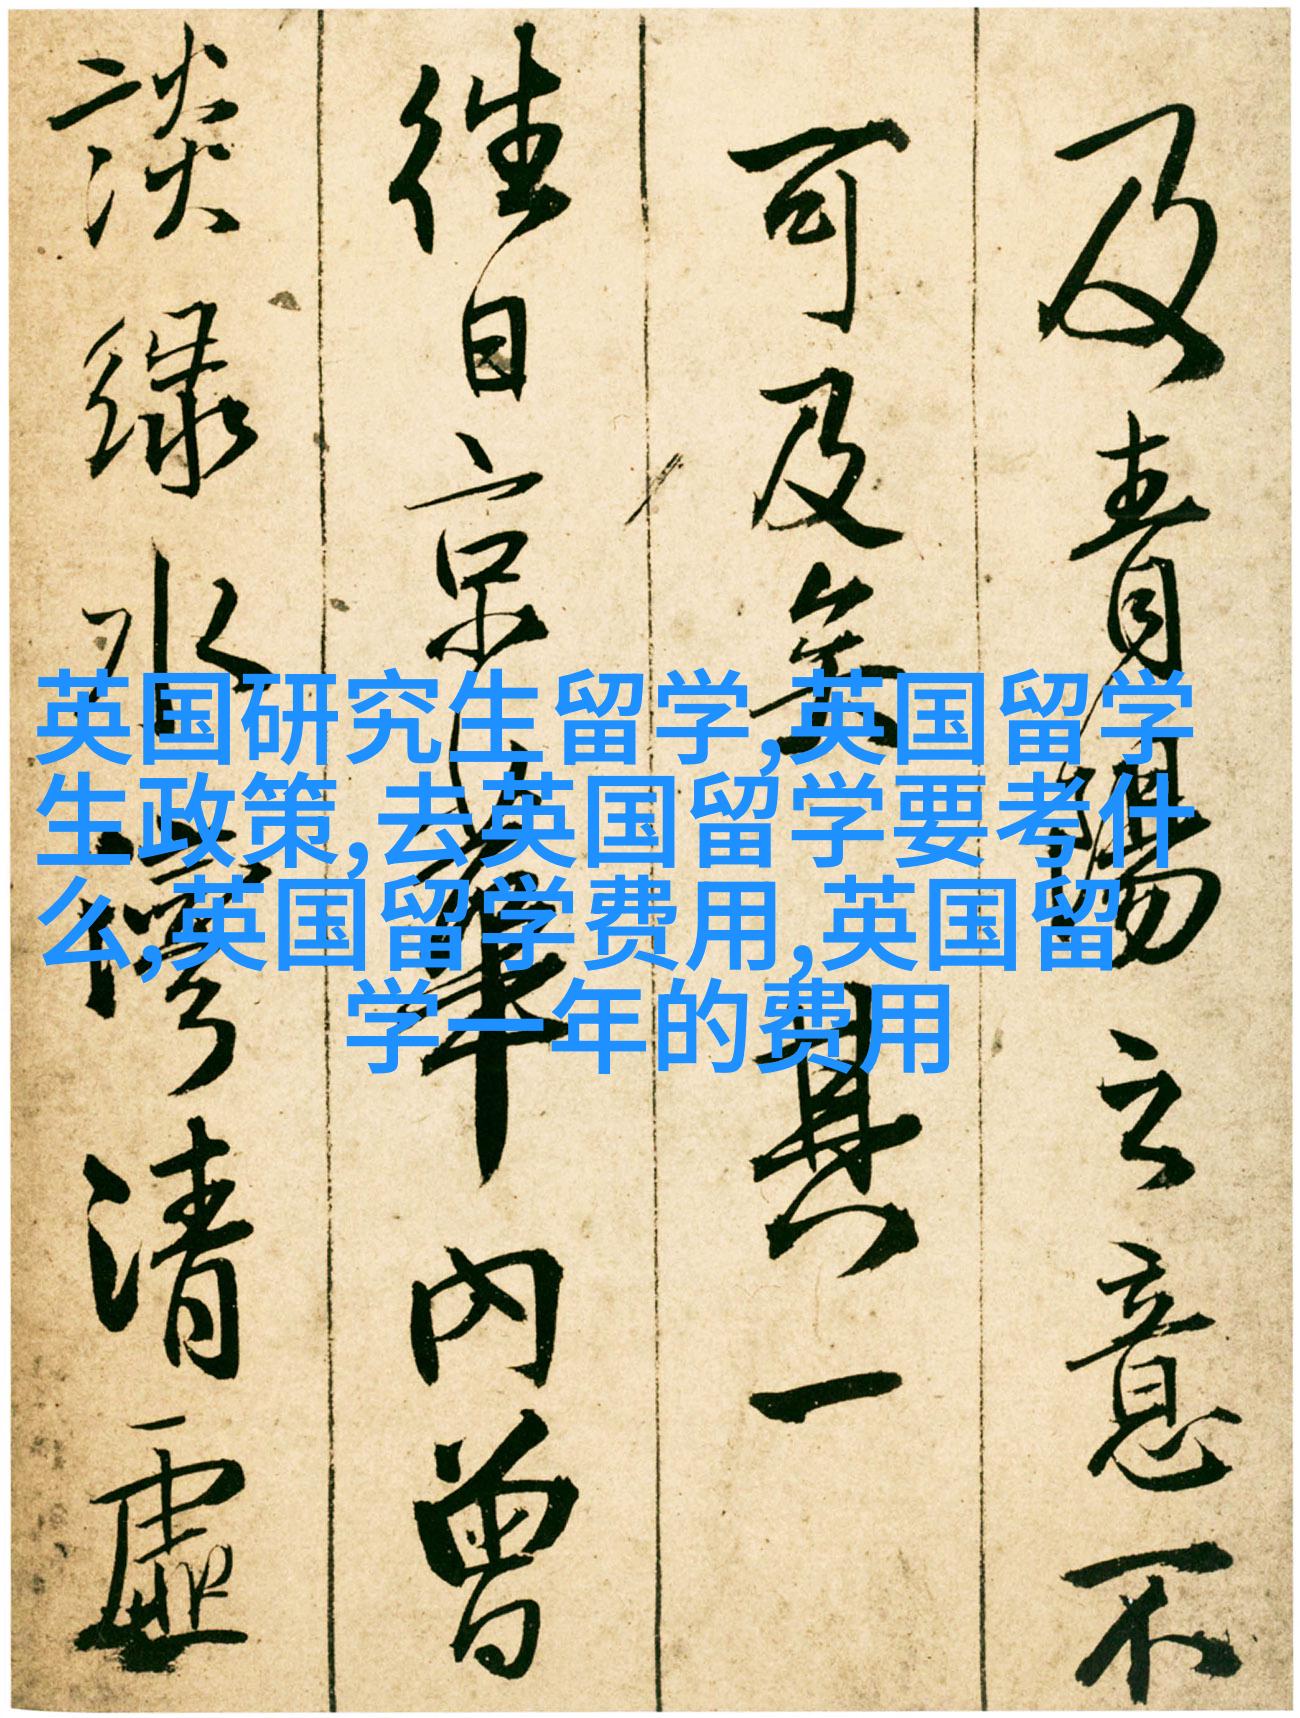 及青陽之意不
可及矣其一
往日京華内曾
談緑水灣清虛
英国研究生留学,英国留学
生政策,去英国留学要考什
么,英国留学费用,英国留
学一年的费用